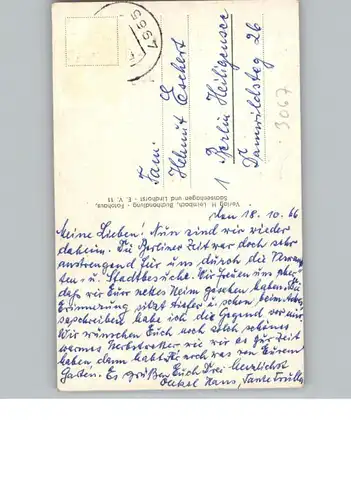 Fam.
Helmut Eschert
1 Berlin Heiligensee
Damwildsteg 26
3067
Verlag H. Lembach, Buchhandlung - Fotohaus,
Sachsenhagen und Lindhorst - F. V. 11
den 18.10.66
Meine Lieben! Nun sind wir wieder
daheim. Die Berliner Zeit war doch sehr
anstrengend für uns durch die
u. Stadtbesuche. Wir freuen uns
daß wir Euer nettes Heim gesehen haben. Die
Erinnerung sitzt tiefer u. schon beim
habe ich die Gegend vor mir.
Wir wünschen Euch noch solch schönes
warmes Herbstwetter wie wir es zur Zeit
haben, dann habt Ihr noch was von Eurem
Garten. Es grüßen Euch Drei herzlichst
Onkel Hans, Tante Trudl